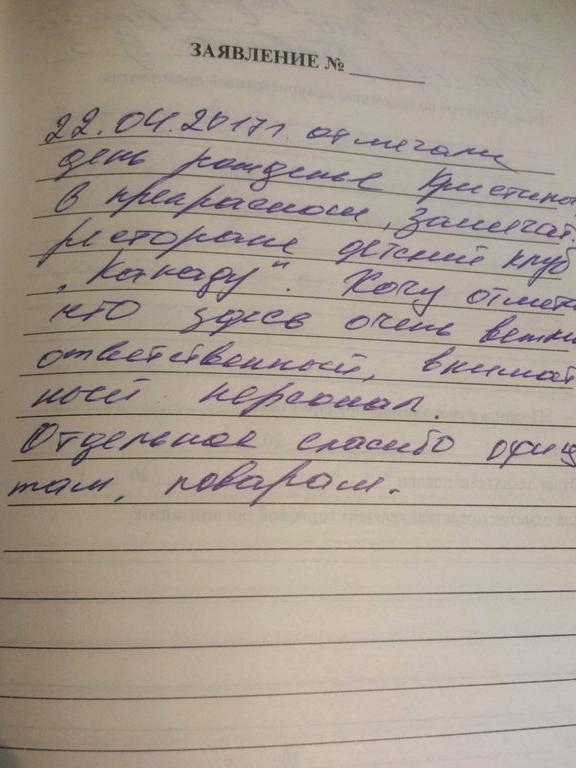 ЗАЯВЛЕНИЕ № ______
22.04.2017г. отмечали
день рожденье Кристины
в прекрасном, замечат.
ресторане детский клуб
"Канаду". Хочу отмети
что здесь очень вежли
ответственный, внимат
ный персонал.
Отдельное спасибо офиц
там, поварам.